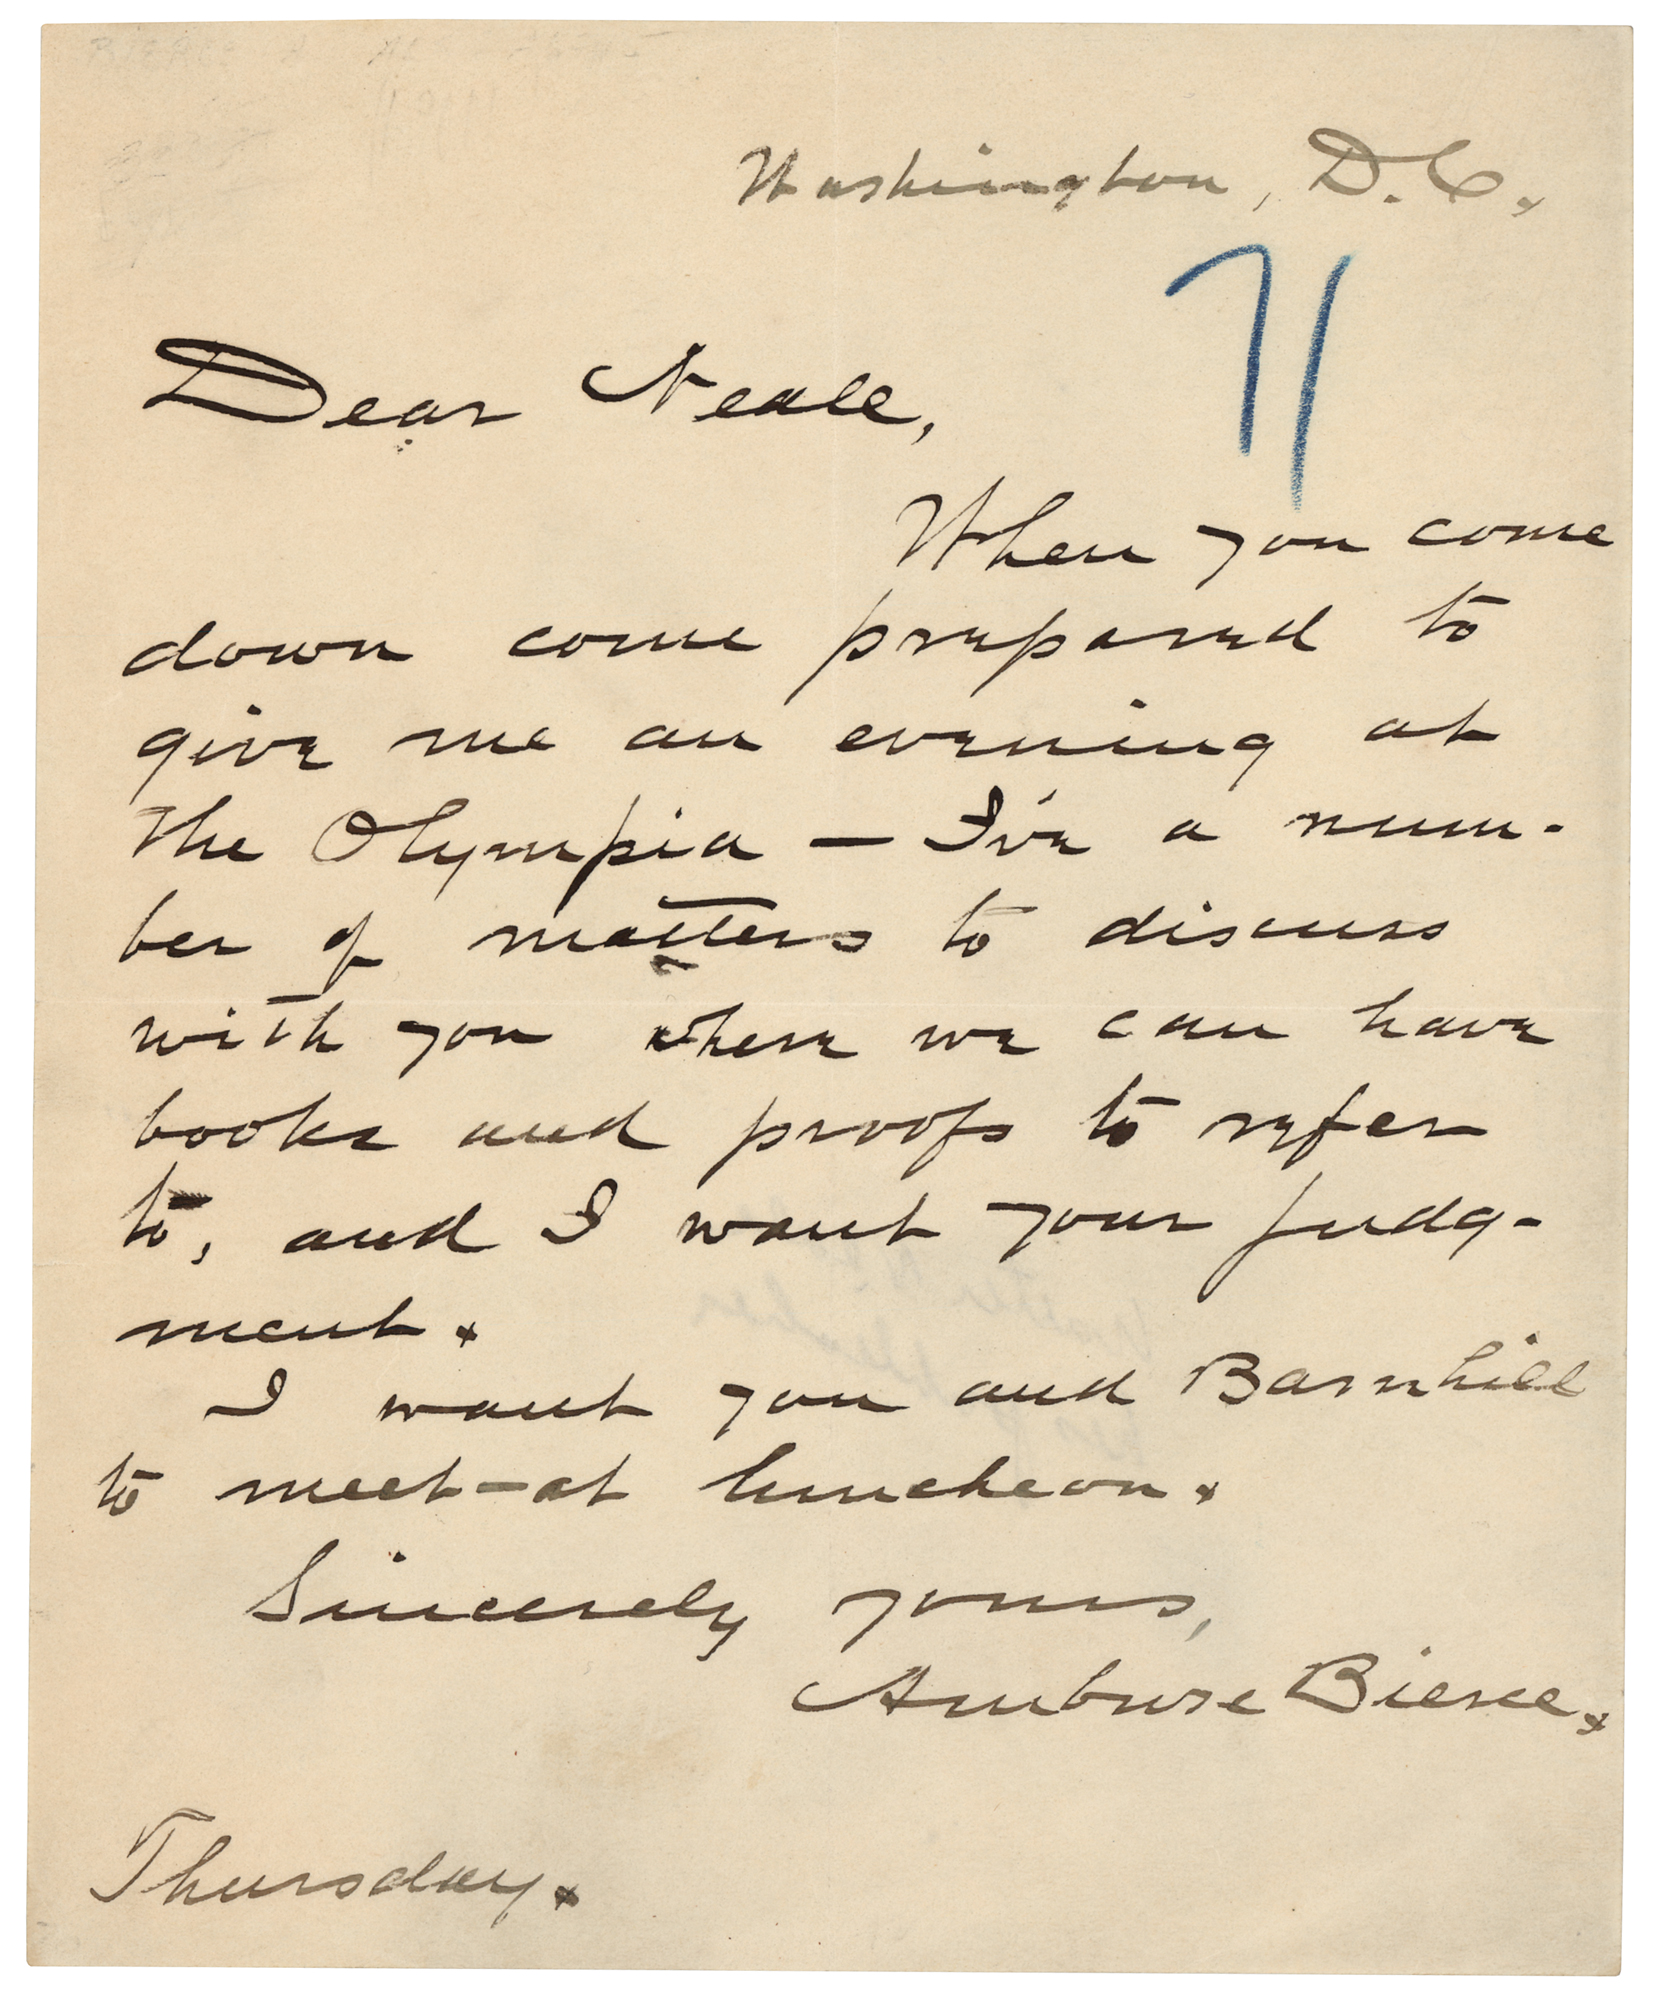 Washington, D.C.
71
Dear Neale,
When you come
down come prepared to
give me an evening at
the Olympia — I've a num-
ber of matters to discuss
with you where we can have
books and proofs to refer
to, and I want your judg-
ment.
I want you and Barnhill
to meet—at luncheon.
Sincerely yours,
Ambrose Bierce.
Thursday.